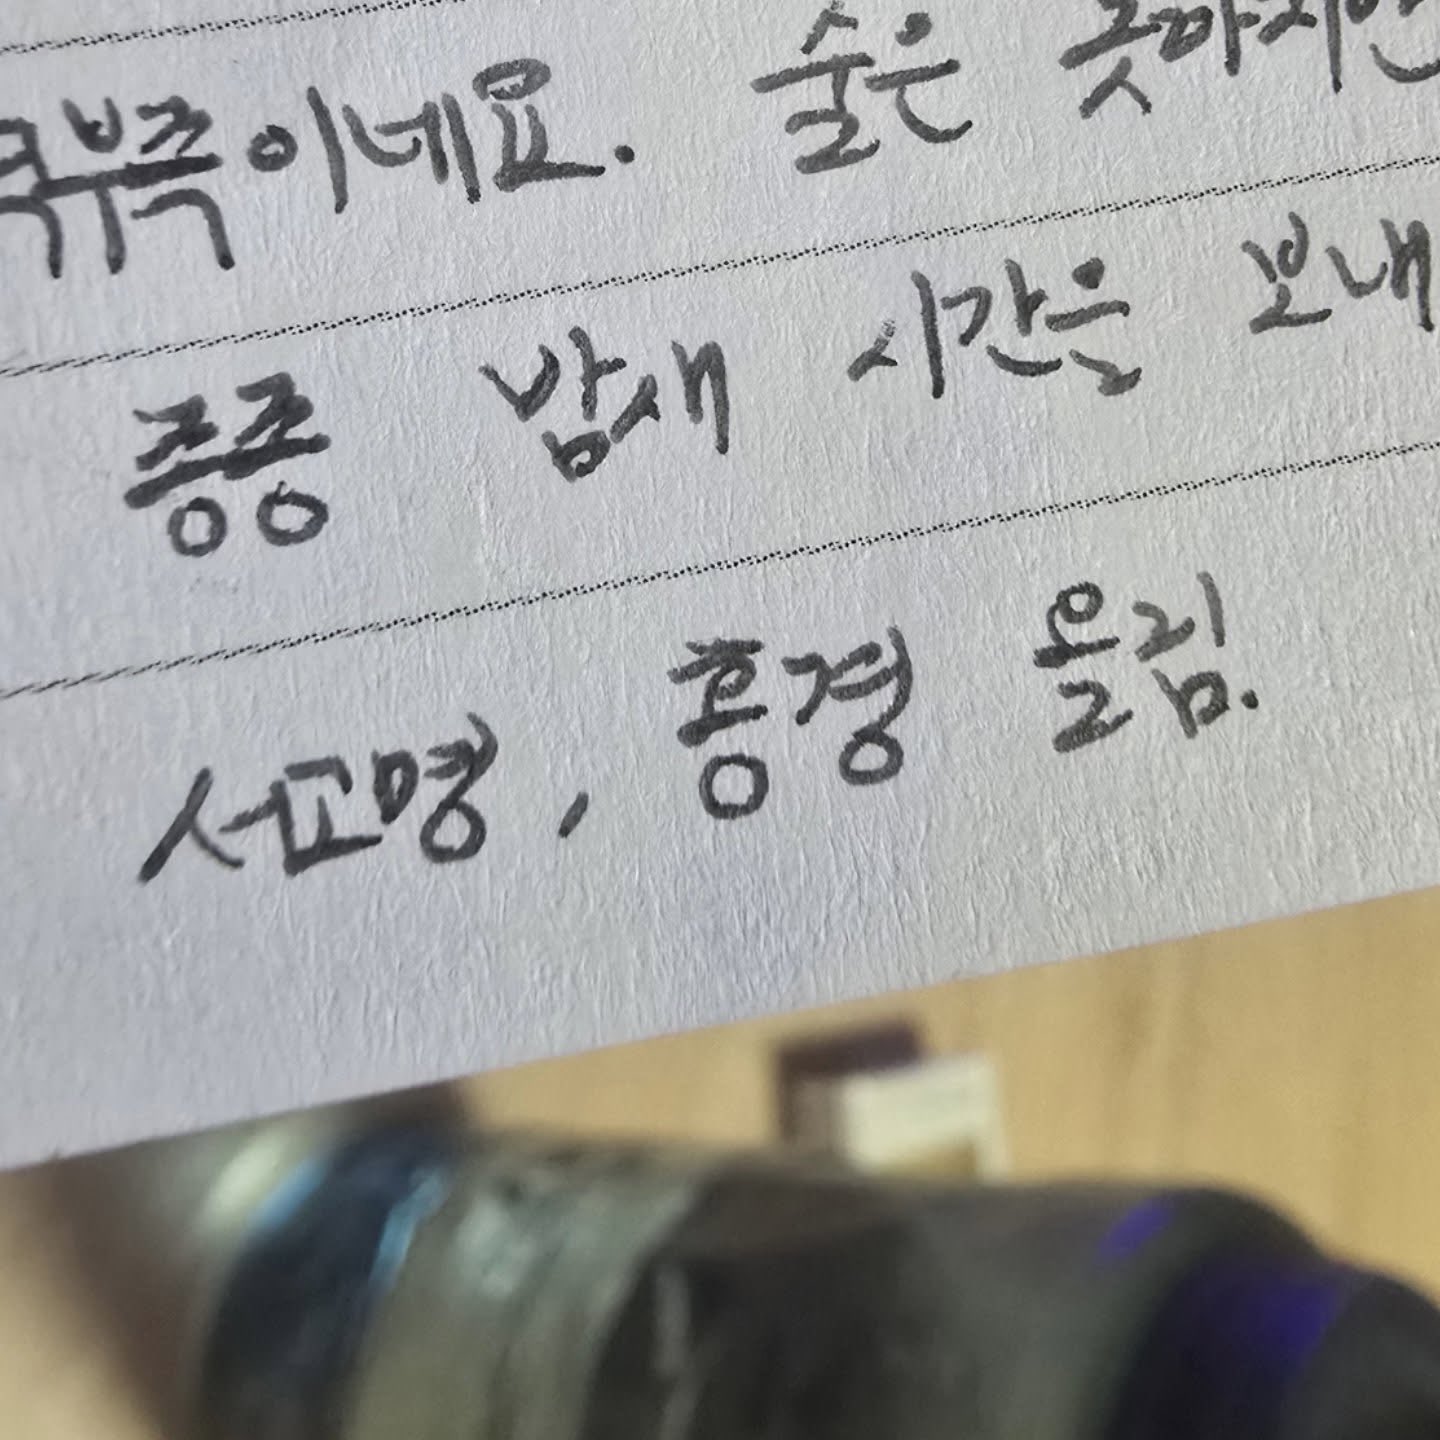 부족이네요. 술은 못마시만
종종 밤새 시간을 보내
서교명, 흥경 올림.